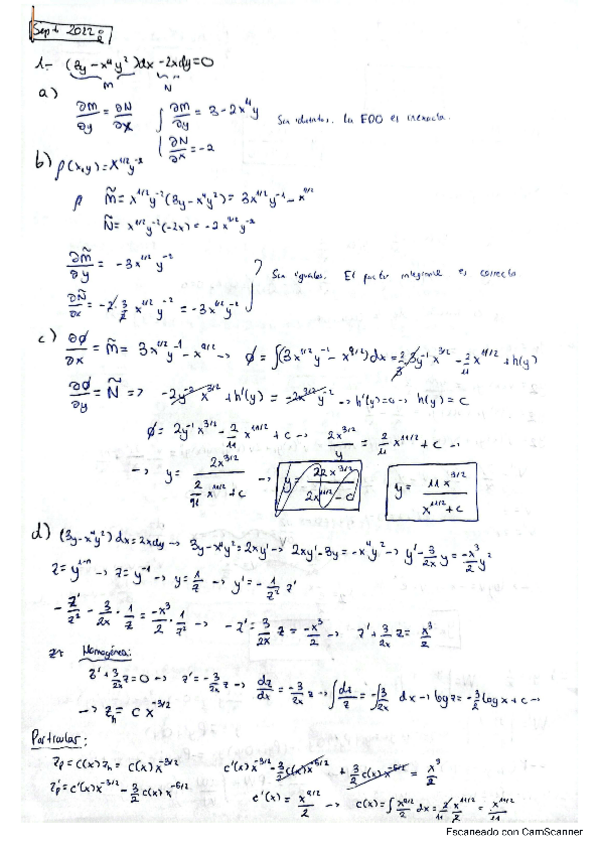 Sept 2022:
1.- (3y - x⁴y²)dx - 2xdy = 0
M N
a)
∂M/∂y = ∂N/∂x { ∂M/∂y = 3 - 2x⁴y
Son distintos. La EDO es inexacta.
∂N/∂x = -2
b) ρ(x,y) = x^{1/2}y^{-2}
M̃ = x^{1/2}y^{-2}(3y - x⁴y²) = 3x^{1/2}y^{-1} - x^{9/2}
Ñ = x^{1/2}y^{-2}(-2x) = -2x^{3/2}y^{-2}
∂M̃/∂y = -3x^{1/2}y^{-2}
Son iguales. El factor integrante es correcto
∂Ñ/∂x = -2·3/2 x^{1/2}y^{-2} = -3x^{1/2}y^{-2}
c) ∂ϕ/∂x = M̃ = 3x^{1/2}y^{-1} - x^{9/2} → ϕ = ∫(3x^{1/2}y^{-1} - x^{9/2})dx = 2/3·3y^{-1}x^{3/2} - 2/11 x^{11/2} + h(y)
∂ϕ/∂y = Ñ => -2y^{-2}x^{3/2} + h'(y) = -2x^{3/2}y^{-2} → h'(y) = 0 → h(y) = c
ϕ = 2y^{-1}x^{3/2} - 2/11 x^{11/2} + c → 2x^{3/2}/y = 2/11 x^{11/2} + c →
→ y = 2x^{3/2}/(2/11 x^{11/2} + c) → y = 22x^{3/2}/(2x^{11/2} - c) y = 11x^{3/2}/(x^{11/2} + c)
d) (3y - x⁴y²)dx = 2xdy → 3y - x⁴y² = 2xy' → 2xy' - 3y = -x⁴y² → y' - 3/2x y = -x³/2 y²
z = y^{1-n} → z = y^{-1} → y = 1/z → y' = -1/z² z'
-z'/z² - 3/2x · 1/z = -x³/2 · 1/z² → -z' - 3/2x z = -x³/2 → z' + 3/2x z = x³/2
Homogénea:
z' + 3/2x z = 0 → z' = -3/2x z → dz/dx = -3/2x z → ∫dz/z = -∫3/2x dx → log z = -3/2 log x + c →
→ z_h = c x^{-3/2}
Particular:
z_p = c(x) z_h = c(x) x^{-3/2} c'(x) x^{-3/2} - 3/2 c(x) x^{-5/2} + 3/2 c(x) x^{-5/2} = x³/2
z_p' = c'(x) x^{-3/2} - 3/2 c(x) x^{-5/2}
c'(x) = x^{9/2}/2 → c(x) = ∫x^{9/2}/2 dx = 2/11 x^{11/2}/2 = x^{11/2}/11
Escaneado con CamScanner